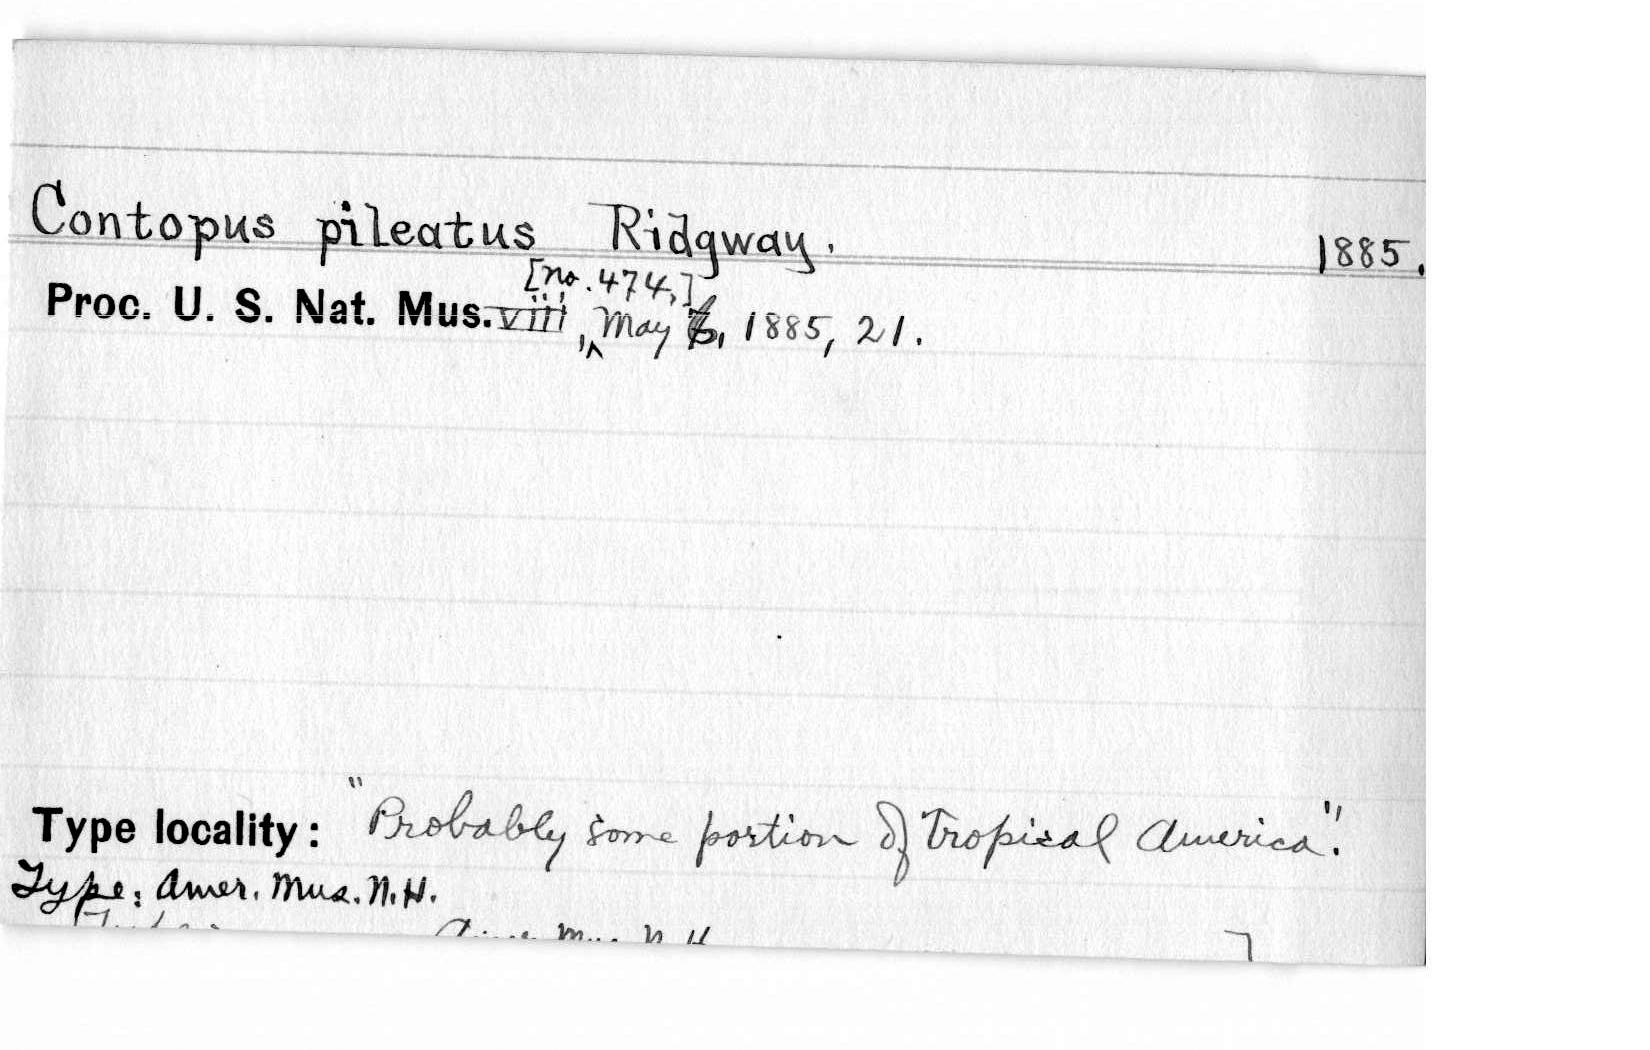 Contopus pileatus Ridgway. 1885.
[no. 474,]
Proc. U. S. Nat. Mus. viii, May , 1885, 21.
Type locality: "Probably some portion of tropical America".
Type: Amer. Mus. N.H.
Amer. Mus. N. H.